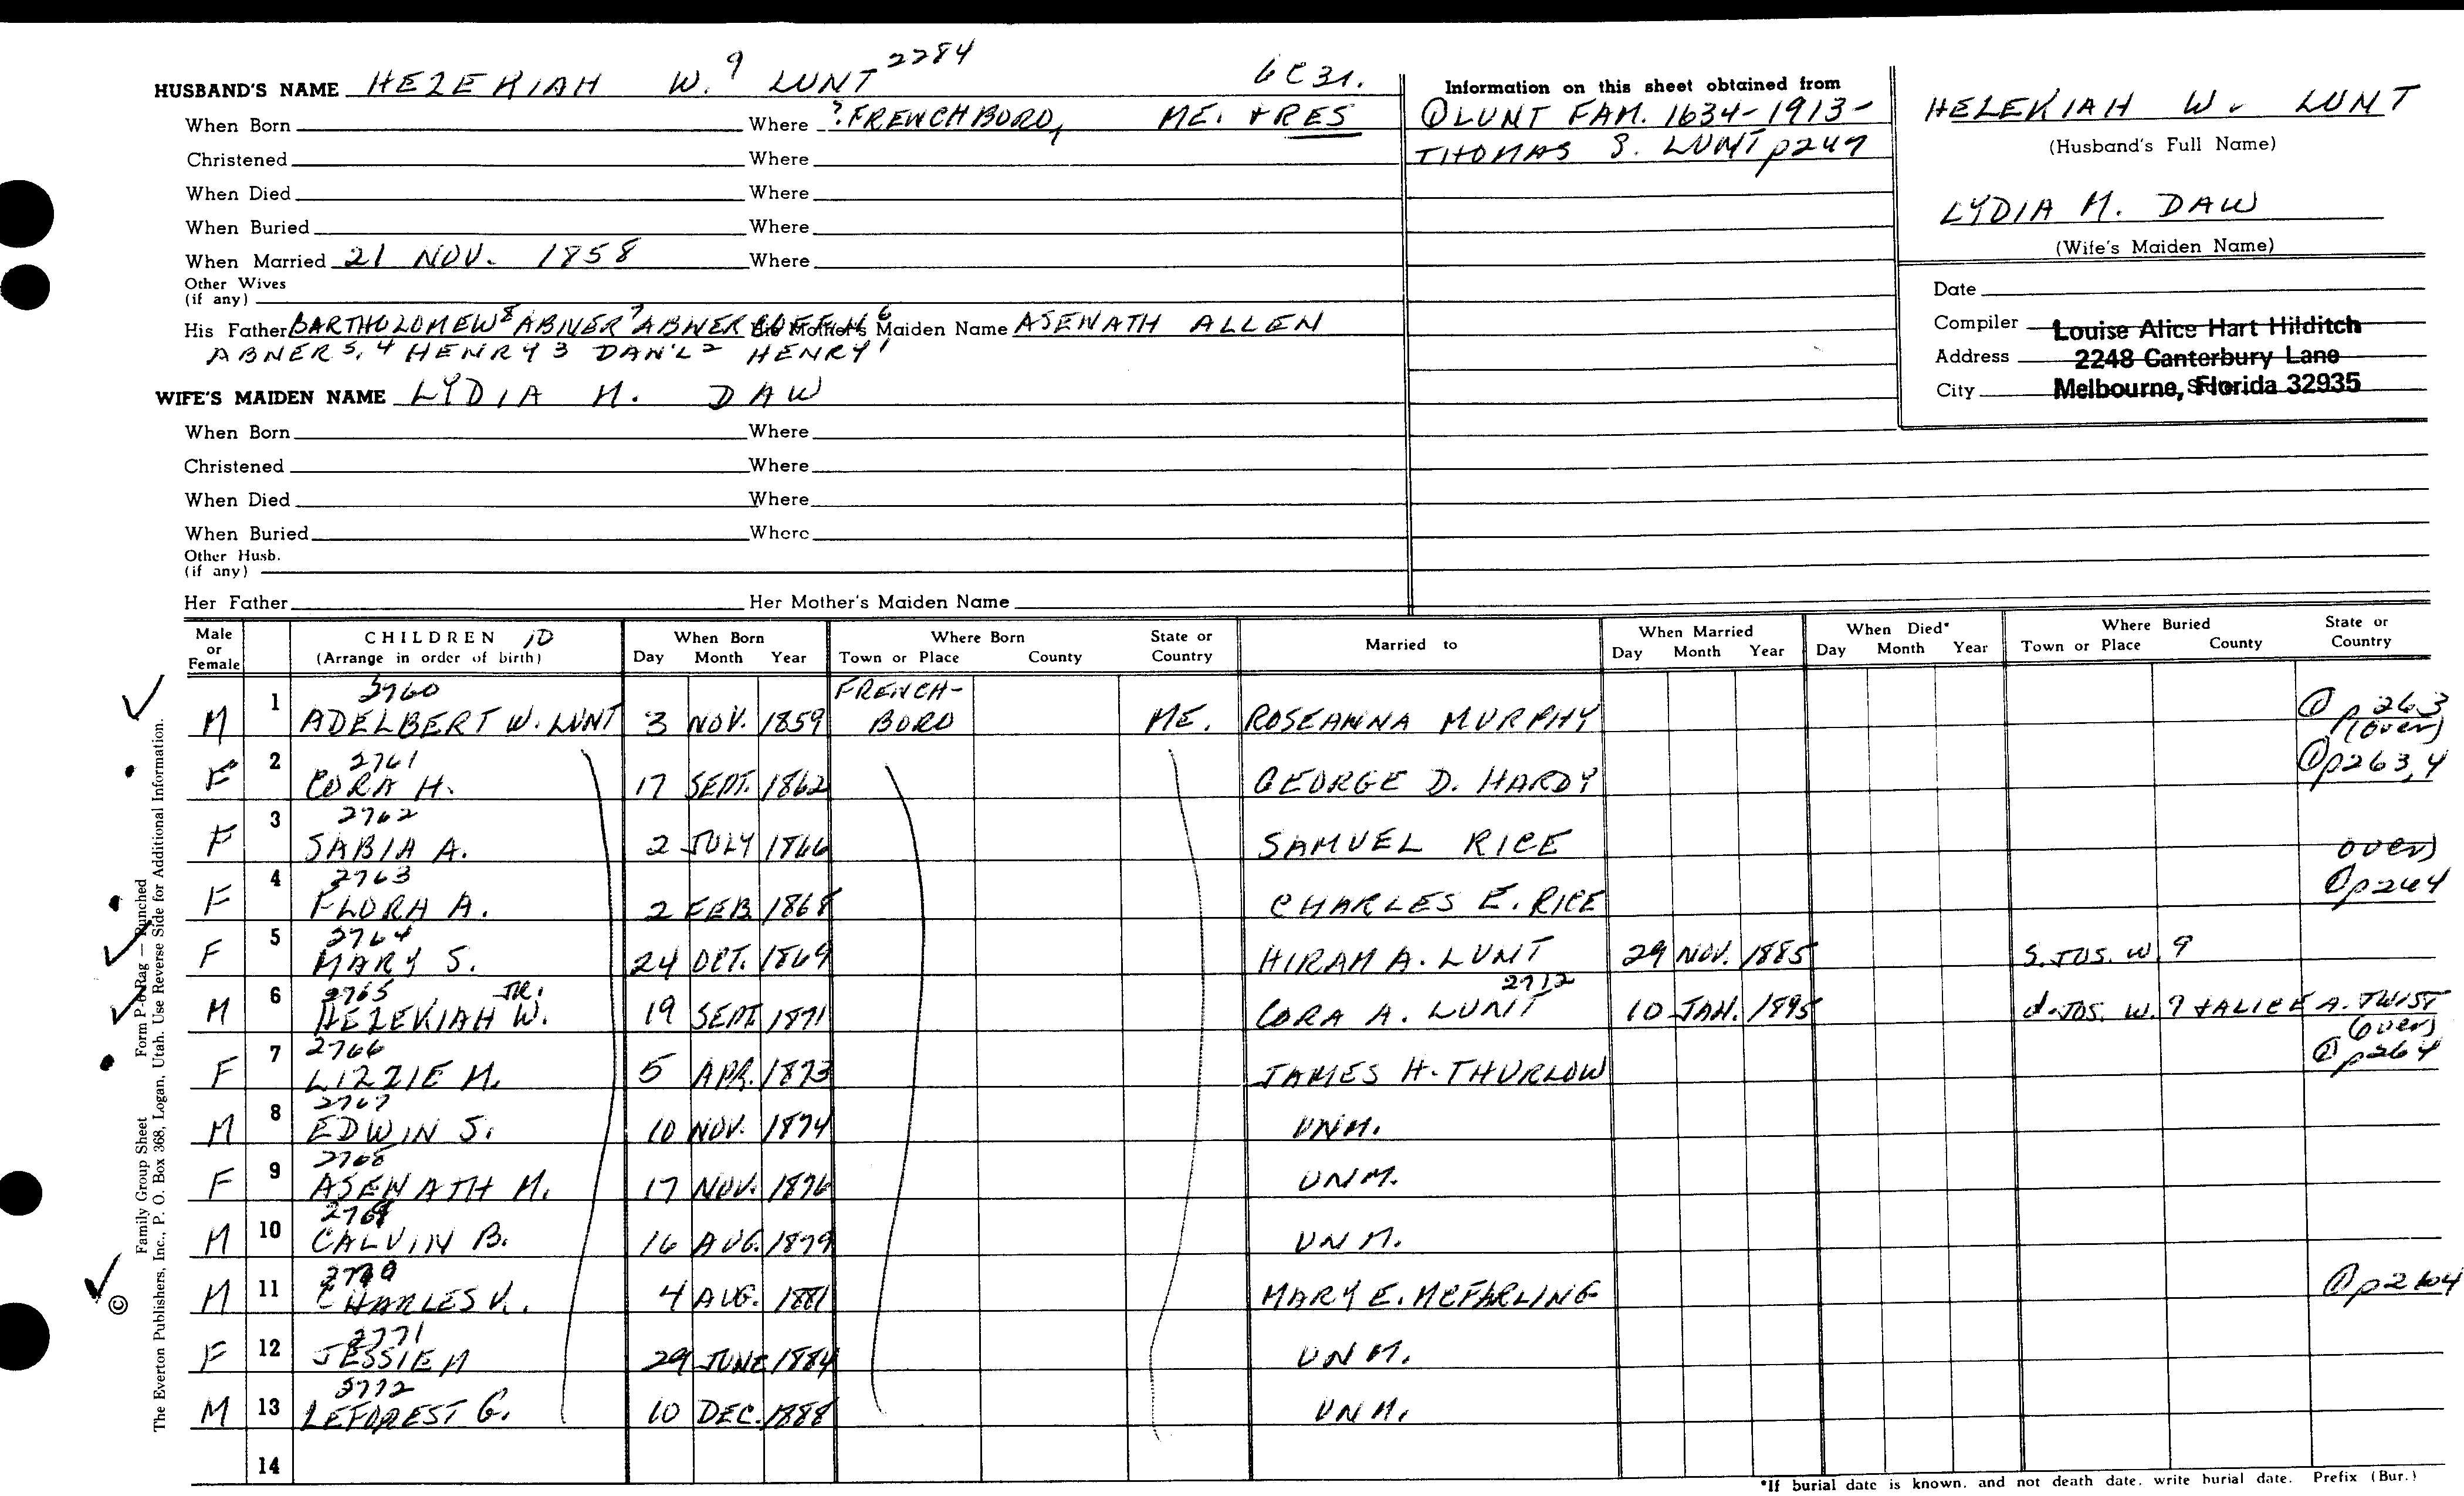 HUSBAND'S NAME HEZEKIAH W. 9 LUNT 2284 6C31.
When Born Where ? FRENCHBORO, ME. + RES
Christened Where
When Died Where
When Buried Where
When Married 21 NOV. 1858 Where
Other Wives
(if any)
His Father BARTHOLOMEW 8 ABNER 7 ABNER 6 His Mother's Maiden Name ASENATH ALLEN
ABNER 5, 4 HENRY 3 DAN'L 2 HENRY 1
WIFE'S MAIDEN NAME LYDIA M. DAW
When Born Where
Christened Where
When Died Where
When Buried Where
Other Husb.
(if any)
Her Father Her Mother's Maiden Name
Information on this sheet obtained from
① LUNT FAM. 1634-1913-
THOMAS S. LUNT p247
HEZEKIAH W. LUNT
(Husband's Full Name)
LYDIA M. DAW
(Wife's Maiden Name)
Date
Compiler Louise Alice Hart Hilditch
Address 2248 Canterbury Lane
City Melbourne, Florida 32935
Male or Female CHILDREN ID (Arrange in order of birth) When Born Day Month Year Where Born Town or Place County State or Country Married to When Married Day Month Year When Died* Day Month Year Where Buried Town or Place County State or Country
2760 FRENCH-
M 1 ADELBERT W. LUNT 3 NOV. 1859 BORO ME. ROSEANNA MURPHY ① p263
(over)
2761
F 2 CORA H. 17 SEPT. 1862 GEORGE D. HARDY ① p263,4
2762
F 3 SABIA A. 2 JULY 1866 SAMUEL RICE over)
2763
F 4 FLORA A. 2 FEB 1868 CHARLES E. RICE ① p264
2764
F 5 MARY S. 24 OCT. 1869 HIRAM A. LUNT 29 NOV. 1885 S. JOS. W. 9
2765 JR. 2712
M 6 HEZEKIAH W. 19 SEPT 1871 CORA A. LUNT 10 JAN. 1895 d. JOS. W. 9 + ALICE A. TWIST
(over)
2766
F 7 LIZZIE M. 5 APR. 1873 JAMES H. THURLOW ① p264
2767
M 8 EDWIN S. 10 NOV. 1874 UNM.
2768
F 9 ASENATH M. 17 NOV. 1876 UNM.
2769
M 10 CALVIN B. 16 AUG. 1879 UNM.
2770
M 11 CHARLES V. 4 AUG. 1881 MARY E. MCFARLING ① p264
2771
F 12 JESSIE M 29 JUNE 1884 UNM.
2772
M 13 LEFOREST G. 10 DEC. 1888 UNM.
14
*If burial date is known, and not death date, write burial date. Prefix (Bur.)
© Family Group Sheet Form P-6 Rag — Punched
The Everton Publishers, Inc., P. O. Box 368, Logan, Utah. Use Reverse Side for Additional Information.